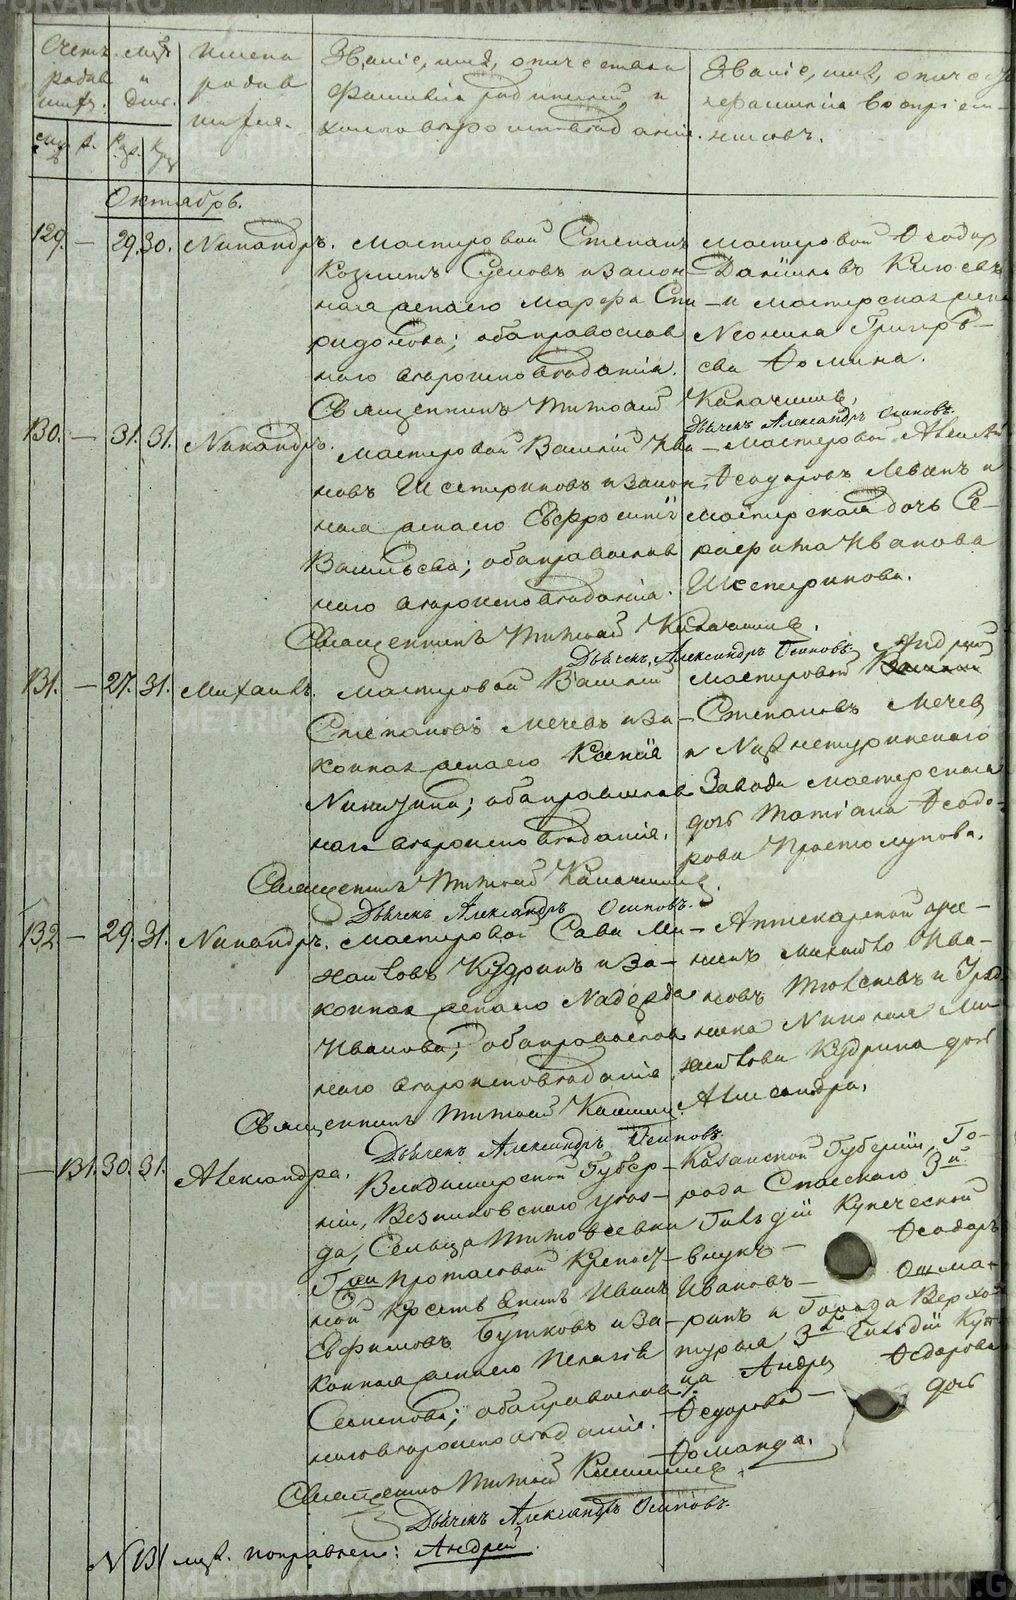 Счетъ родив шихъ. Мѣс. и Дни.
Имена родив шихся.
Званіе, имя, отчество и Фамилія родителей, и какого вѣроисповѣданія.
Званіе, имя, отчество и фамилія воспріемниковъ.
Октябрь.
129. — 29. 30. Никандръ. Мастеровой Степанъ
Козминъ Суслов и закон-
ная жена его Марфа Спи-
ридонова; оба православ
наго вѣроисповѣданія.
Мастеровой Ѳеодор
Даніиловъ
и мастерская жена
Неонила Григорь-
ева Ѳомина.
Священникъ
Дьячекъ Александръ Осиповъ.
130. — 31. 31. Никандръ. Мастеровой Василій Ива
новъ Шестериковъ и закон
ная жена его Евфросинія
Васильева; оба православ
наго вѣроисповѣданія.
Мастеровой Алексѣй
Ѳеодоровъ Левинъ и
мастерская дочь Се-
рафима Иванова
Шестерикова.
Священникъ
Дьячекъ Александръ Осиповъ.
131. — 27. 31. Михаилъ. Мастеровой Василій
Степановъ Мечевъ и за-
конная жена его Ксенія
Никитина; оба православ
наго вѣроисповѣданія.
Андрей
мастеровой Василій
Степановъ Мечев
и Нижнетуринскаго
Завода мастерская
дочь Татіана Ѳеодо-
рова Простолупова.
Священникъ
Дьячекъ Александръ Осиповъ.
132 — 29. 31. Никандръ. Мастеровой Сава Ми-
хайловъ Кудринъ и за-
конная жена его Надежда
Иванова; оба православ
наго вѣроисповѣданія.
Аптекарской уче-
никъ Михайло Ива-
новъ и Уряд
ника Николая Ми-
хайлова Кудрина дочь
Александра.
Священникъ
Дьячекъ Александръ Осиповъ.
— 131. 30. 31. Александра. Владимірской Губер-
ніи, Вязниковскаго уѣз-
да, Сельца
Г-жи Протасовой крепост-
ной крестьянинъ Иванъ
Ефимовъ Бутковъ и за-
конная жена его Пелагія
Семенова; оба православ
наго вѣроисповѣданія.
Казанской Губерніи, Го-
рода Спаскаго 3й
Гильдіи купеческой
внукъ — Ѳеодоръ
Ивановъ — Ошма-
ринъ и Города Верхо-
турья 3й Гильдіи Куп-
ца Андрея Ѳедорова
Ѳедорова — дочь
Доманда.
Священникъ
Дьячекъ Александръ Осиповъ.
N 131 поправлено: Андрей.
METRIKI.GASO-URAL.RU